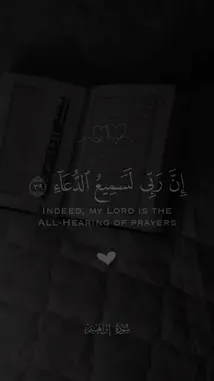 إِنَّ رَبِّي لَسَمِيعُ ٱلدُّعَآءِ ٣٩
INDEED, MY LORD IS THE
ALL-HEARING OF PRAYERS
سُورَةُ إِبْرَاهِيم